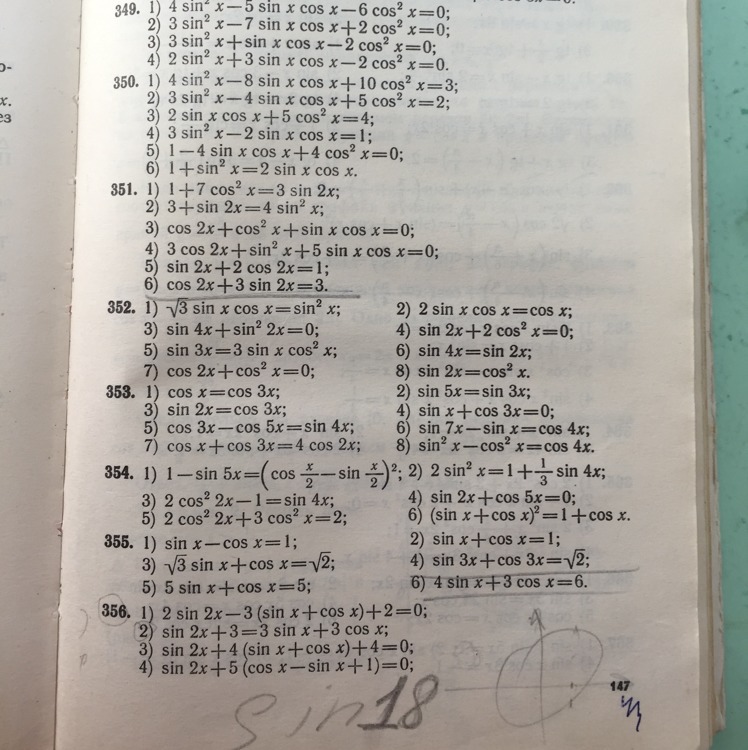 о-
х.
ез
349. 1) 4 sin² x—5 sin x cos x—6 cos² x=0;
2) 3 sin² x—7 sin x cos x+2 cos² x=0;
3) 3 sin² x+sin x cos x—2 cos² x=0;
4) 2 sin² x+3 sin x cos x—2 cos² x=0.
350. 1) 4 sin² x—8 sin x cos x+10 cos² x=3;
2) 3 sin² x—4 sin x cos x+5 cos² x=2;
3) 2 sin x cos x+5 cos² x=4;
4) 3 sin² x—2 sin x cos x=1;
5) 1—4 sin x cos x+4 cos² x=0;
6) 1+sin² x=2 sin x cos x.
351. 1) 1+7 cos² x=3 sin 2x;
2) 3+sin 2x=4 sin² x;
3) cos 2x+cos² x+sin x cos x=0;
4) 3 cos 2x+sin² x+5 sin x cos x=0;
5) sin 2x+2 cos 2x=1;
6) cos 2x+3 sin 2x=3.
352. 1) √3 sin x cos x=sin² x; 2) 2 sin x cos x=cos x;
3) sin 4x+sin² 2x=0; 4) sin 2x+2 cos² x=0;
5) sin 3x=3 sin x cos² x; 6) sin 4x=sin 2x;
7) cos 2x+cos² x=0; 8) sin 2x=cos² x.
353. 1) cos x=cos 3x; 2) sin 5x=sin 3x;
3) sin 2x=cos 3x; 4) sin x+cos 3x=0;
5) cos 3x—cos 5x=sin 4x; 6) sin 7x—sin x=cos 4x;
7) cos x+cos 3x=4 cos 2x; 8) sin² x—cos² x=cos 4x.
354. 1) 1—sin 5x=(cos x/2—sin x/2)²; 2) 2 sin² x=1+1/3 sin 4x;
3) 2 cos² 2x—1=sin 4x; 4) sin 2x+cos 5x=0;
5) 2 cos² 2x+3 cos² x=2; 6) (sin x+cos x)²=1+cos x.
355. 1) sin x—cos x=1; 2) sin x+cos x=1;
3) √3 sin x+cos x=√2; 4) sin 3x+cos 3x=√2;
5) 5 sin x+cos x=5; 6) 4 sin x+3 cos x=6.
356. 1) 2 sin 2x—3 (sin x+cos x)+2=0;
2) sin 2x+3=3 sin x+3 cos x;
3) sin 2x+4 (sin x+cos x)+4=0;
4) sin 2x+5 (cos x—sin x+1)=0;
147
sin 18